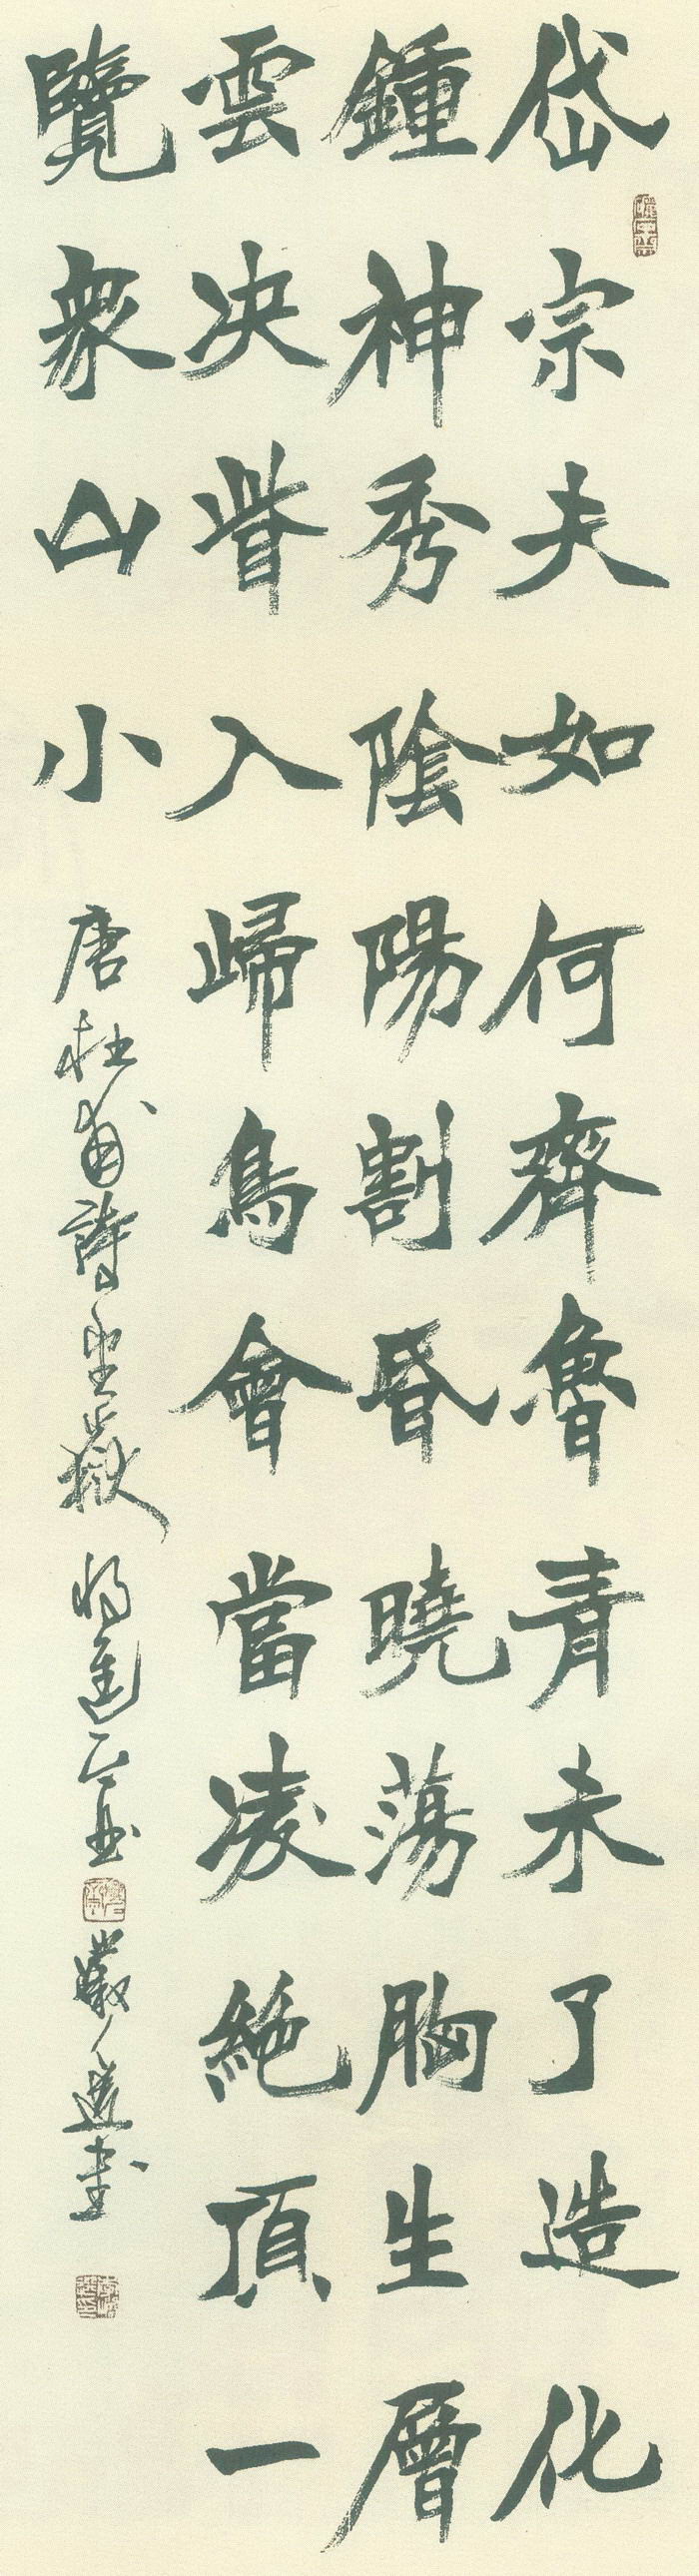 岱宗夫如何齊魯青未了造化
鍾神秀陰陽割昏曉蕩胸生層
雲决眥入歸鳥會當凌絶頂一
覽衆山小 唐杜甫詩望嶽 嚴書